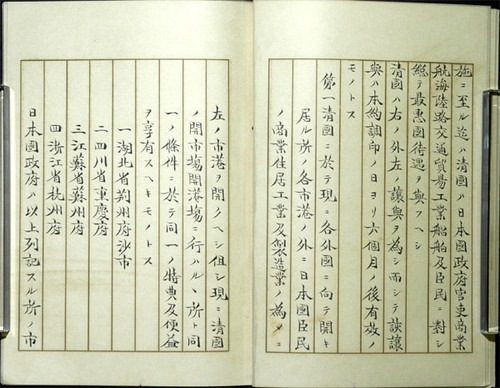 施ニ至ル迄ハ清國ハ日本國政府官吏商業
航海陸路交通貿易工業船舶及臣民ニ對シ
總テ最惠國待遇ヲ與フヘシ
清國ハ右ノ外左ノ讓與ヲ為シ而シテ該讓
與ハ本約調印ノ日ヨリ六個月ノ後有效ノ
モノトス
第一清國ニ於テ現ニ各外國ニ向テ開キ
居ル所ノ各市港ノ外ニ日本國臣民
ノ商業住居工業及製造業ノ為メニ
左ノ市港ヲ開クヘシ但シ現ニ清國
ノ開市場開港場ニ行ハルヽ所ト同
一ノ條件ニ於テ同一ノ特典及便益
ヲ享有スヘキモノトス
一湖北省荊州府沙市
二四川省重慶府
三江蘇省蘇州府
四浙江省杭州府
日本國政府ハ以上列記スル所ノ市